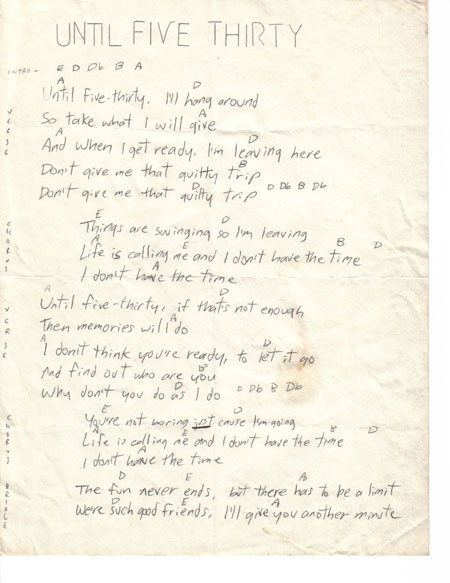 UNTIL FIVE THIRTY
INTRO - E D Db B A
A D
Until five-thirty, I'll hang around
A
So take what I will give
A D
And when I get ready, I'm leaving here
B
Don't give me that guilty trip
D D Db B Db
Don't give me that guilty trip
VERSE
E D
Things are swinging so I'm leaving
A E B D
Life is calling me and I don't have the time
A
I don't have the time
CHORUS
A D
Until five-thirty, if that's not enough
A
Then memories will do
A D
I don't think you're ready, to let it go
B
And find out who are you
D D Db B Db
Why don't you do as I do
VERSE
E D
You're not boring just cause I'm going
A E B D
Life is calling me and I don't have the time
A
I don't have the time
CHORUS
D E A
The fun never ends, but there has to be a limit
D E A
We're such good friends, I'll give you another minute
BRIDGE